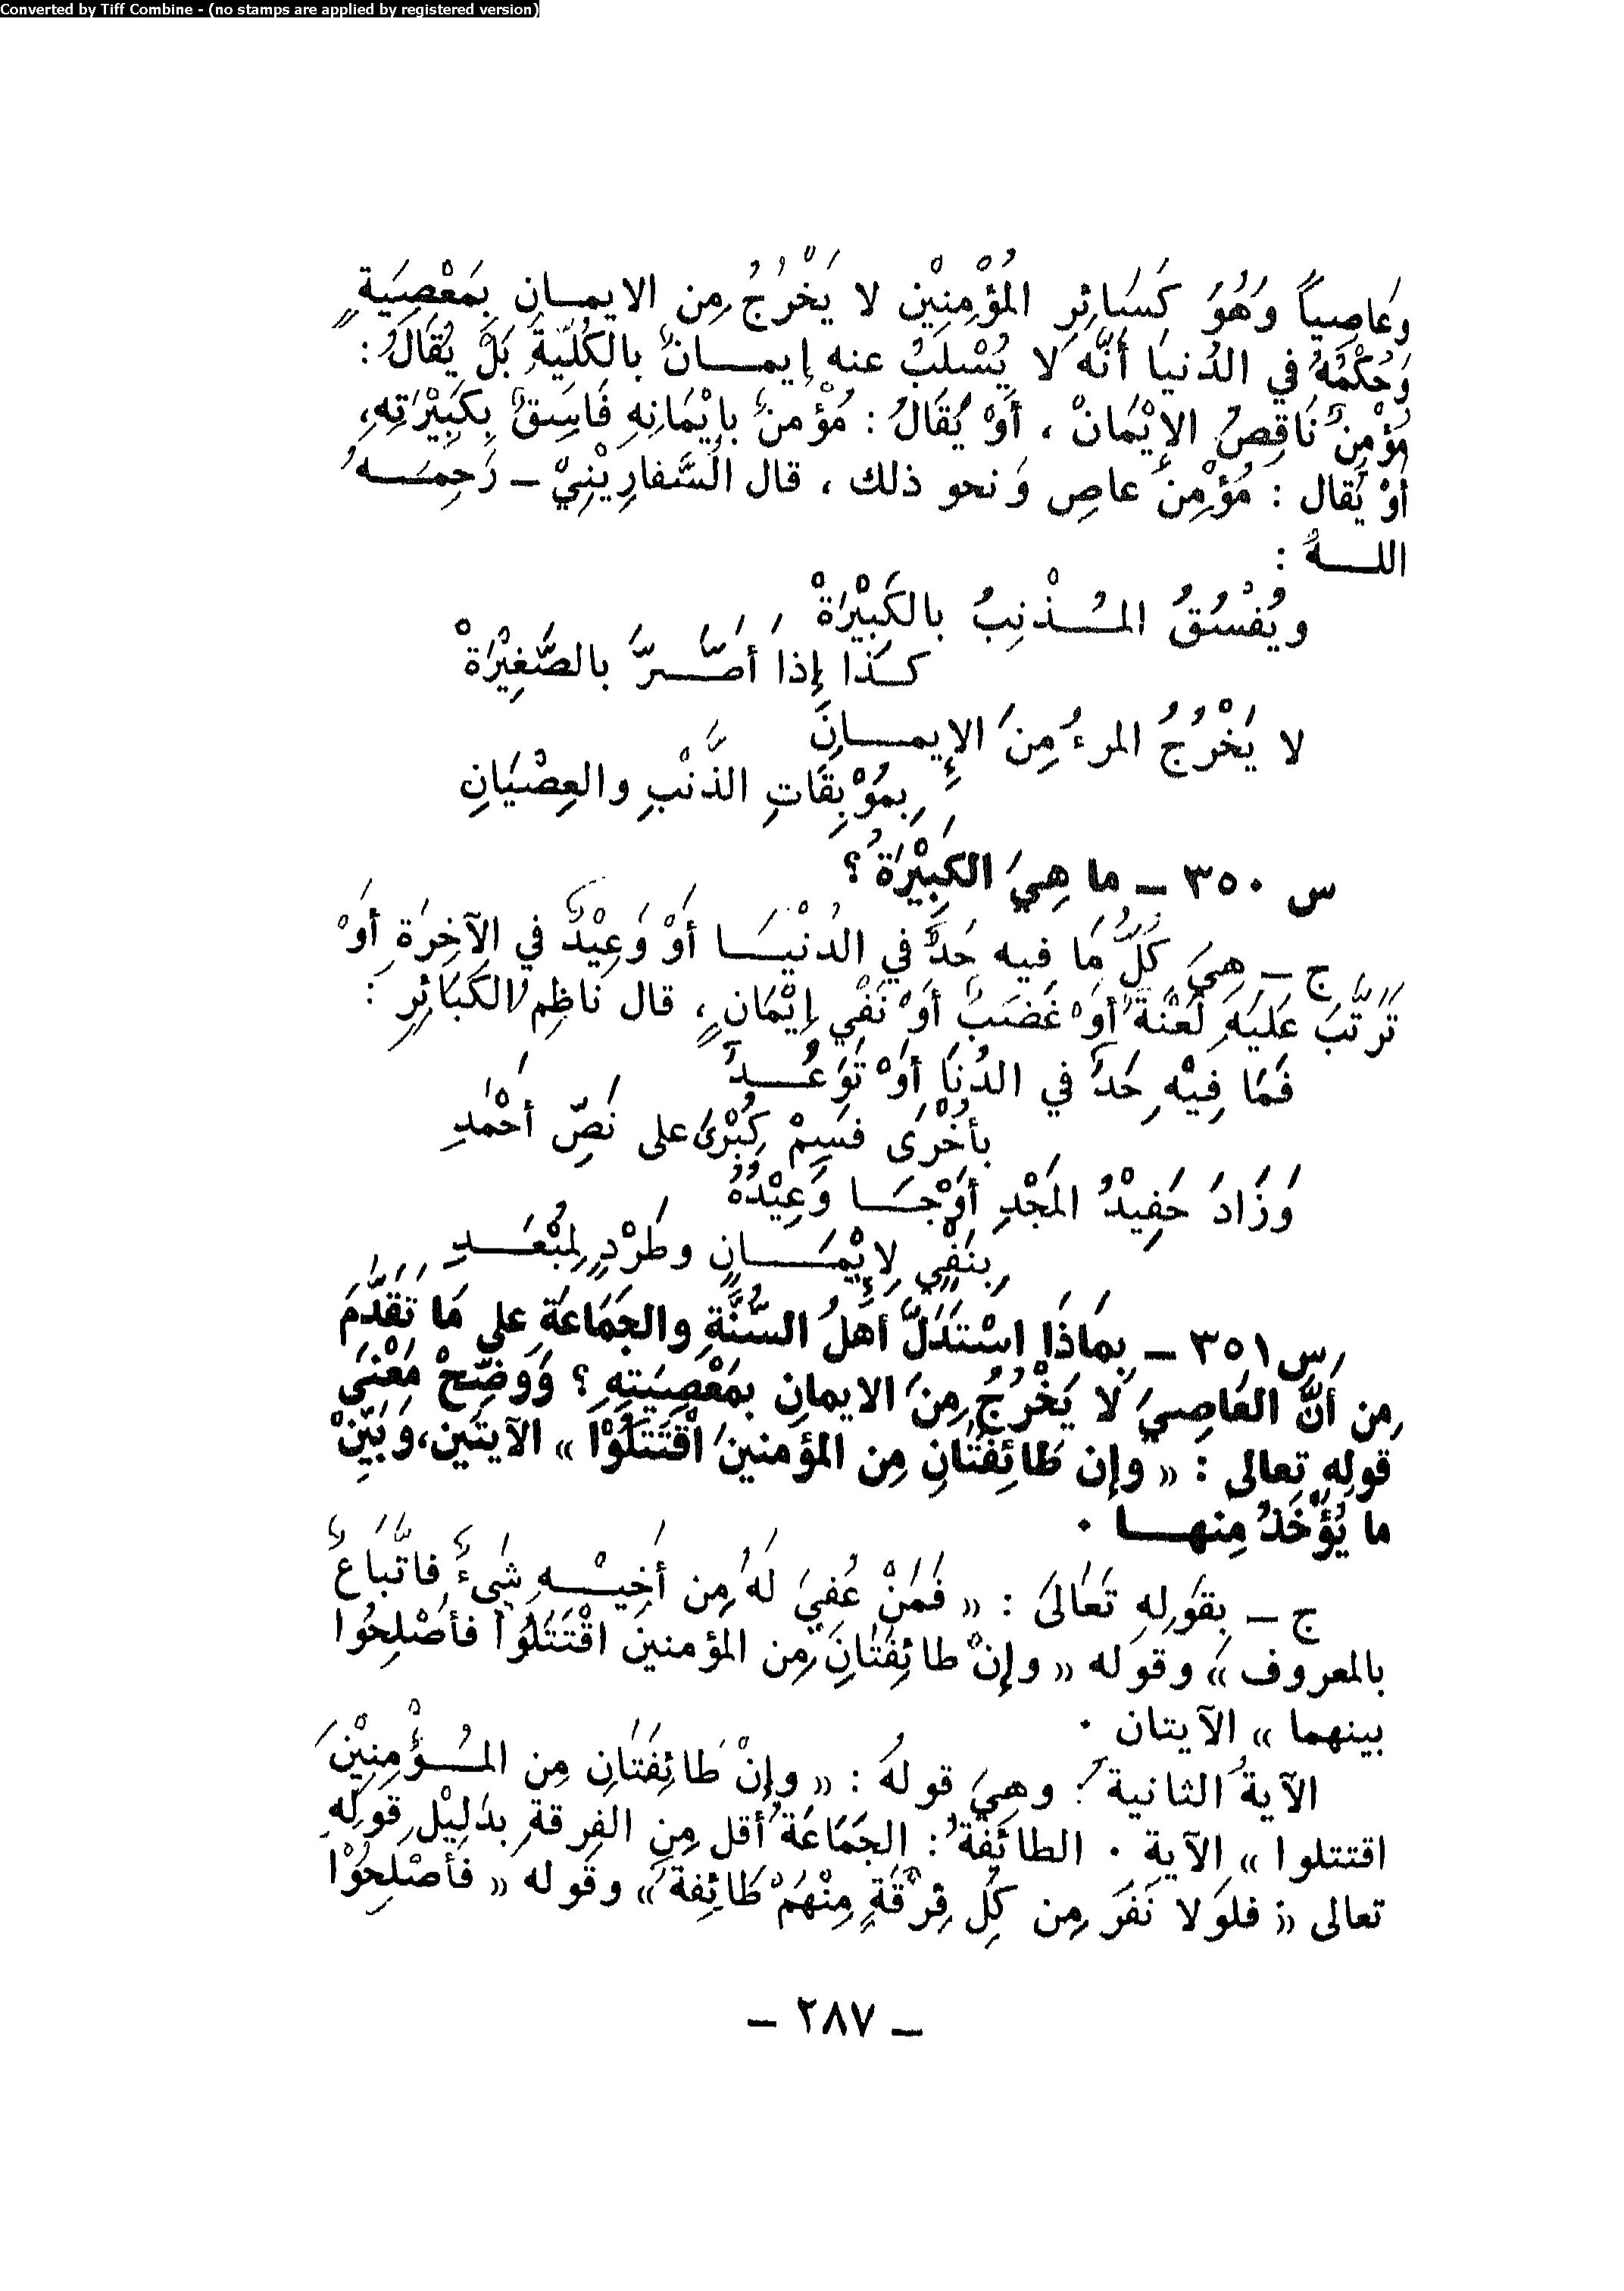 Converted by Tiff Combine - (no stamps are applied by registered version)
وَعاصِياً وَهُوَ كَسَائِرِ المُؤْمِنِيْن لا يَخْرُجُ مِن الايمان بِمَعْصِيَةٍ
وَحُكْمُهُ في الدُنيَا أَنَّه لا يُسْلَبُ عنه إيمانٌ بالكُلّيَّةِ بَلْ يُقَالُ :
مُؤْمِنٌ نَاقِصُ الإيْمَانْ ، أَوْ يُقَالُ : مُؤْمنٌ بإيْمَانِهِ فَاسِقٌ بِكَبِيْرَتِهِ،
أَوْ يُقال : مُؤْمِنٌ عاصِ وَنحو ذلك ، قال السَّفارِيْنِيْ – رَحِمَهُ
اللهُ :
ويُفْسُقُ المُذْنِبُ بالكَبِيْرَةْ
كَذَا إِذا أَصَرَّ بالصَّغِيْرَةْ
لا يَخْرُجُ المرءُ مِنَ الإِيمانِ
بِمُوْبِقَاتِ الذَّنْبِ والعِصْيَانِ
س ٣٥٠ – ما هِيَ الكَبِيْرَةُ ؟
ج – هِيَ كُلُّ مَا فيه حَدٌّ في الدُنْيَا أَوْ وَعِيْدٌ في الآخِرَةِ أَوْ
تَرَتَّبَ عَلَيهِ لَعْنَةٌ أَوْ غَضَبٌ أَوْ نَفْي إِيْمَانٍ ، قال ناظِم الكَبَائِرِ :
فَمَا فِيْهِ حَدٌ في الدُنَا أَوْ تَوَعُدٌ
بأُخْرَى فسَِمْ كُبْرَىَ على نَصِّ أحْمَدِ
وَزَادَ حَفِيْدُ المَجْدِ أَوْجَا وَعِيْدُهُ
بِنَفْيٍ لِإيْمَانٍ وطَرْدٍ لِمُبْعَدِ
س ٣٥١ – بِمَاذَا اسْتَدَلَّ أَهلُ السُّنَّةِ والجَمَاعَةِ على مَا تَقَدَّمَ
مِن أَنَّ العَاصِيَ لَا يَخْرُجُ مِنَ الايمانِ بمَعْصِيَتِهِ ؟ وَوَضِّحْ مَعْنَى
قولِهِ تعالى : « وإن طَائِفَتَانِ مِن المؤمنينَ اقْتَتَلُوْا » الآيتَين، وَبَيِّنْ
ما يُؤْخَذُ مِنها ٠
ج – بِقَولِهِ تَعَالىَ : « فَمَنْ عُفِيَ لَهُ مِن أَخِيْهِ شَيءٌ فاتّبَاعٌ
بالمعروف » وقوله « وإنْ طائِفَتَانِ مِن المؤمنينَ اقْتَتَلُوَا فأصْلِحُوا
بينهما » الآيتان ٠
الآيةُ الثانية : وهيَ قولهُ : « وإنْ طَائِفَتَانِ مِن المُؤْمِنِيْنَ
اقتتلوا » الآيةِ ٠ الطائِفَةُ : الجَمَاعَةُ أقل مِنِ الفِرقةِ بدَلِيْلِ قولِهِ
تعالى « فلَولا نَفَرَ مِن كُلِّ فِرْقَةٍ مِنْهُمْ طَائِفة » وقوله « فَأَصْلِحُوْا
– ٢٨٧ –